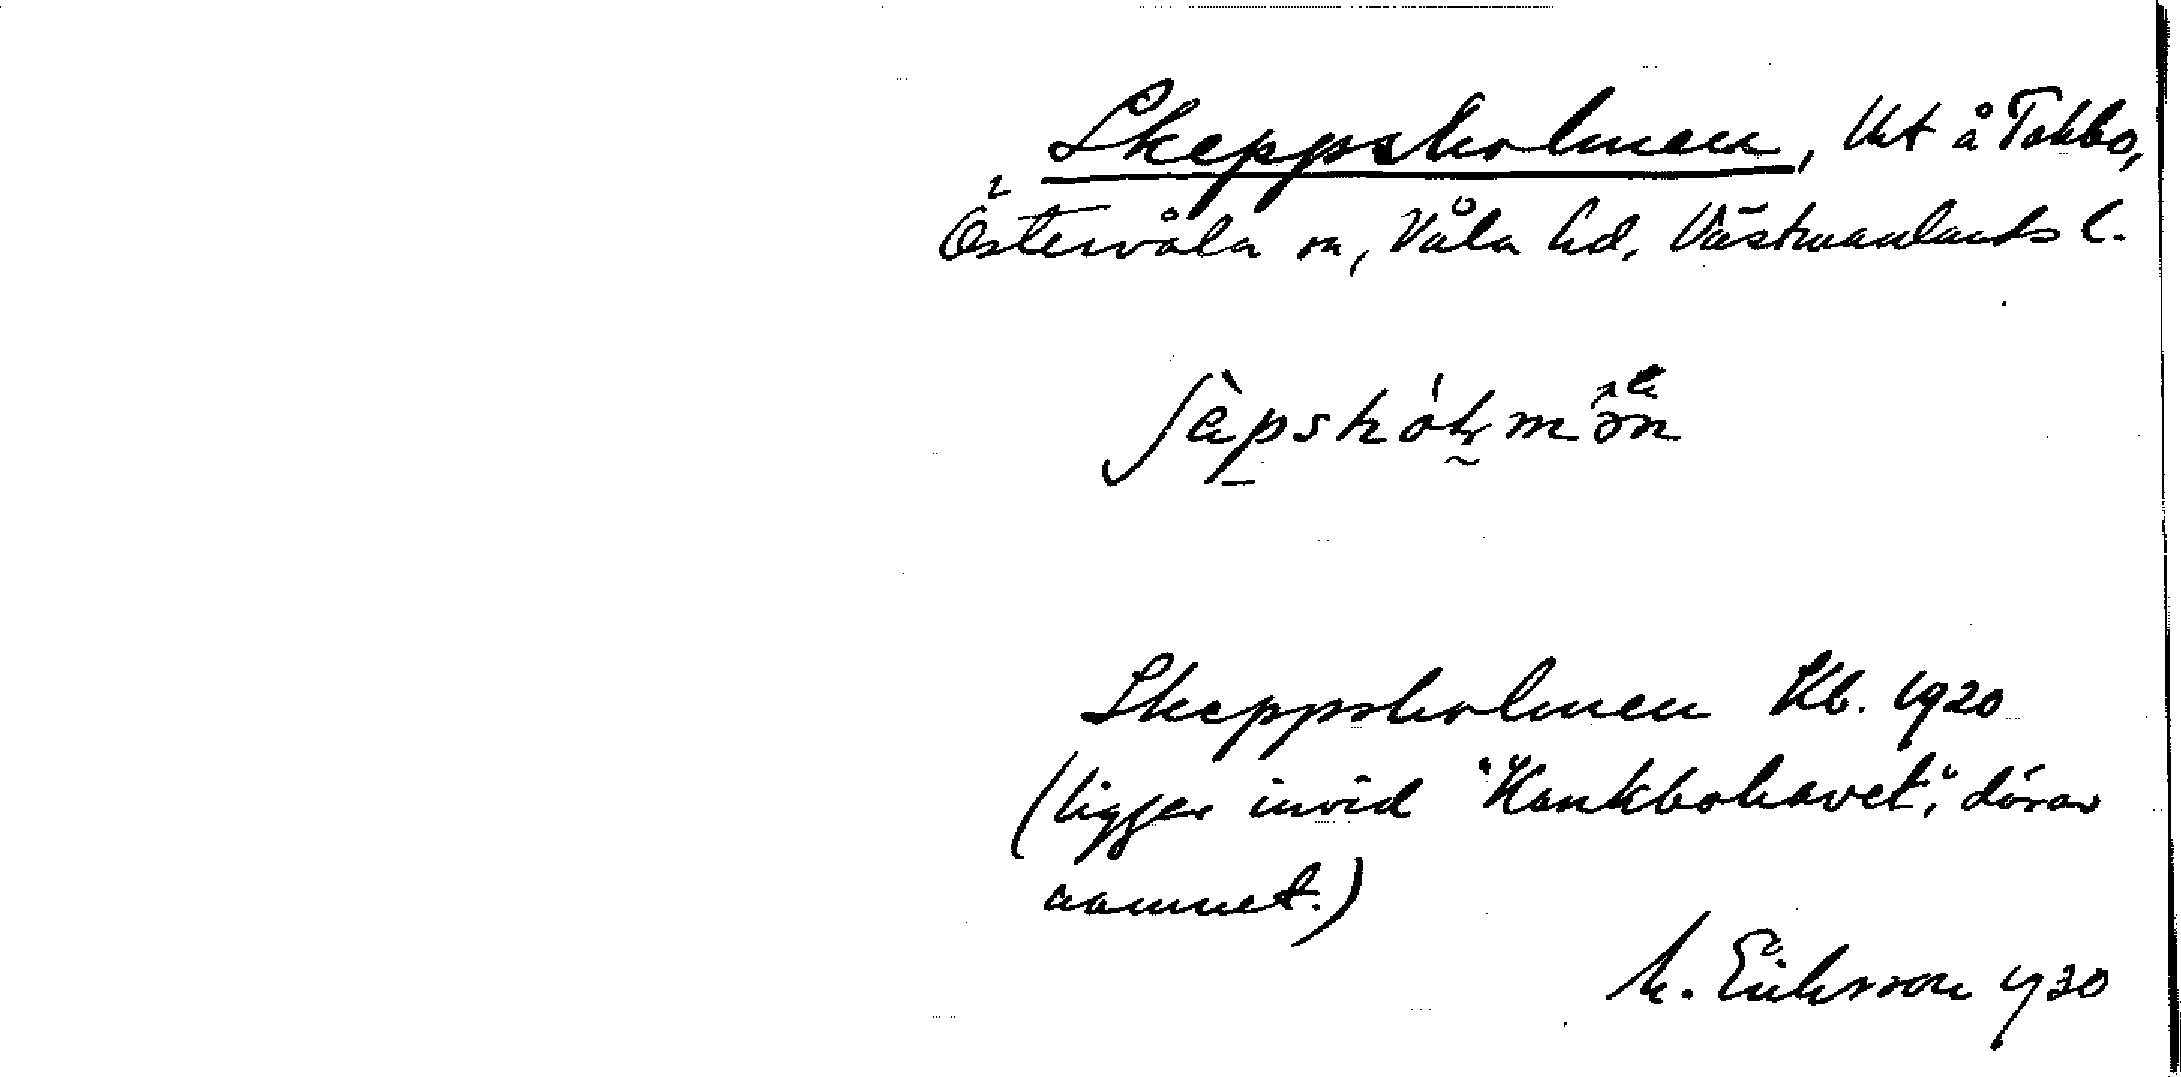 Skeppsholmen, Tokbo,
Östervåla sn, Våla hd, Västmanlands l.
Skeppsholmen Kb. 1920
(ligger invid "Hankbohavet", därav
namnet.)
M. Eriksson 1930